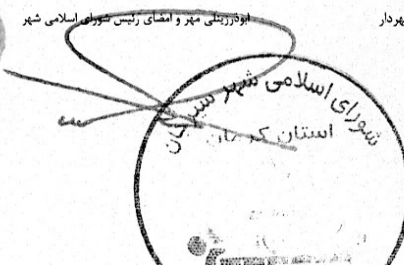 هردار ابوذرزینلی مهر و امضای رئیس شورای اسلامی شهر
شورای اسلامی شهر سیرجان
استان کرمان